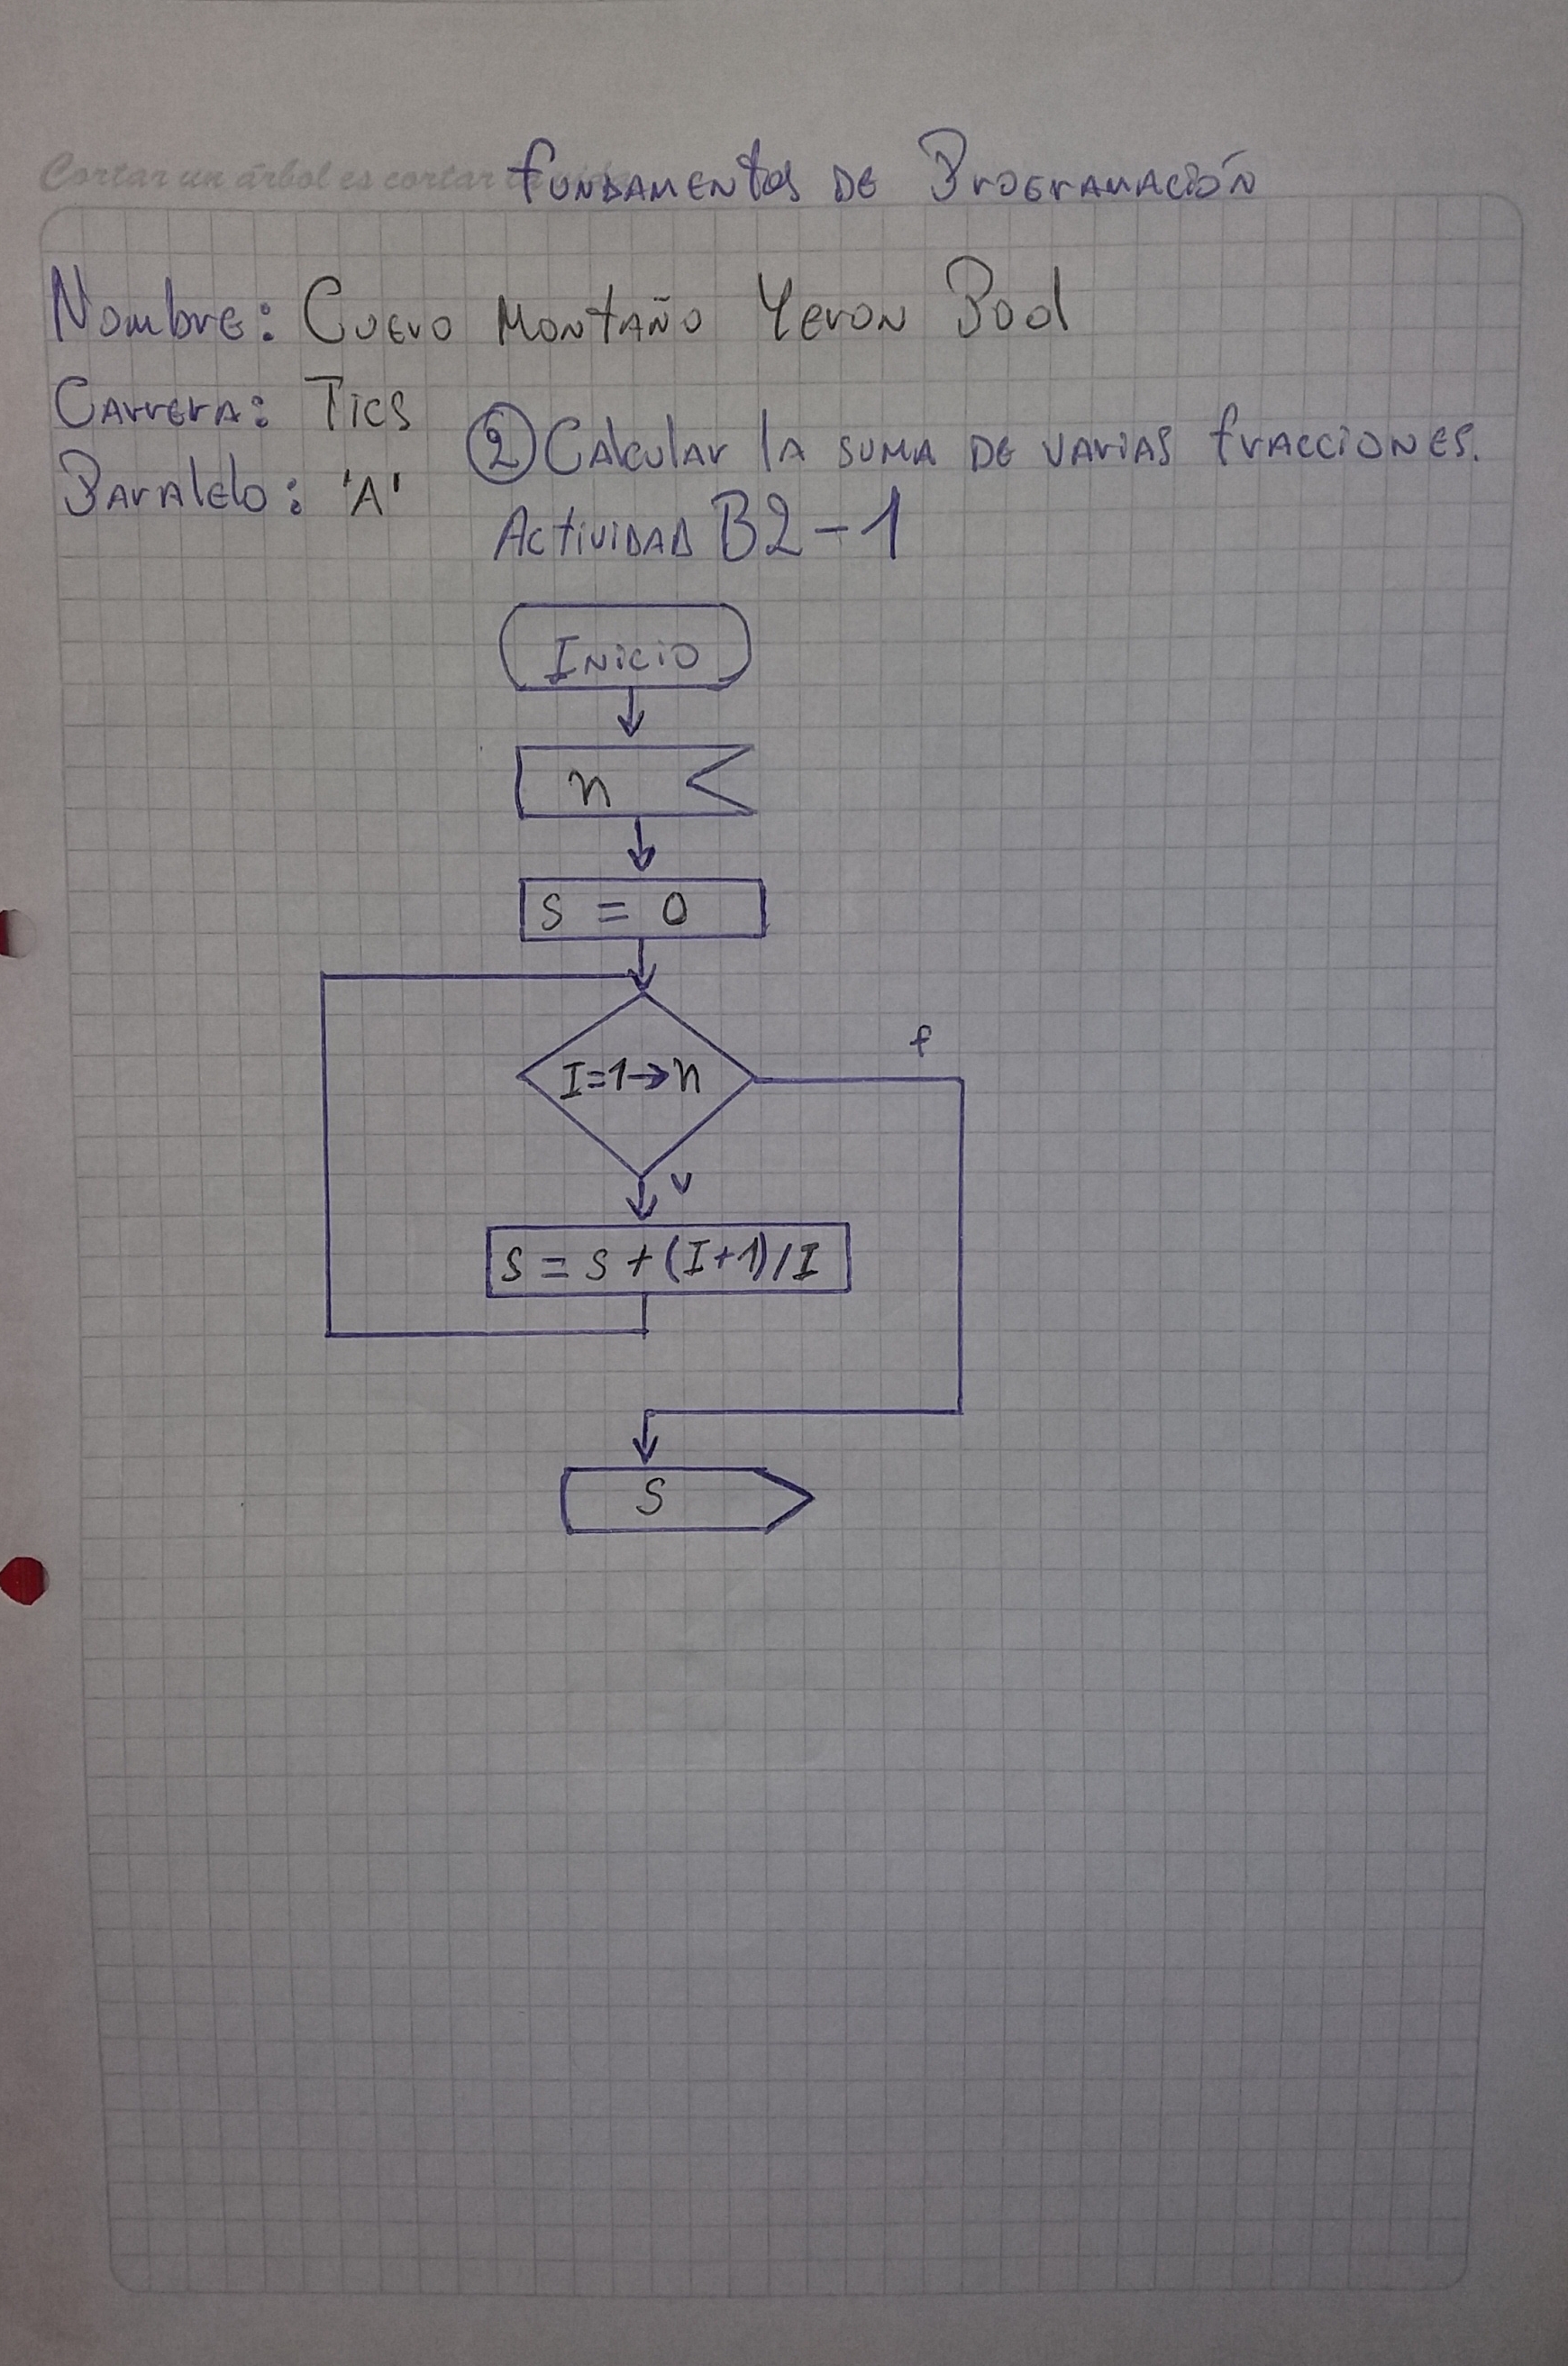 Cortar un árbol es cortar
Fundamentos de Programación
Nombre: Cuero Montaño Yeron Pool
Carrera: Tics
② Calcular la suma de varias fracciones.
Paralelo: 'A'
Actividad B2-1
Inicio
n
S = 0
I=1→n
f
v
S = S + (I+1)/I
S